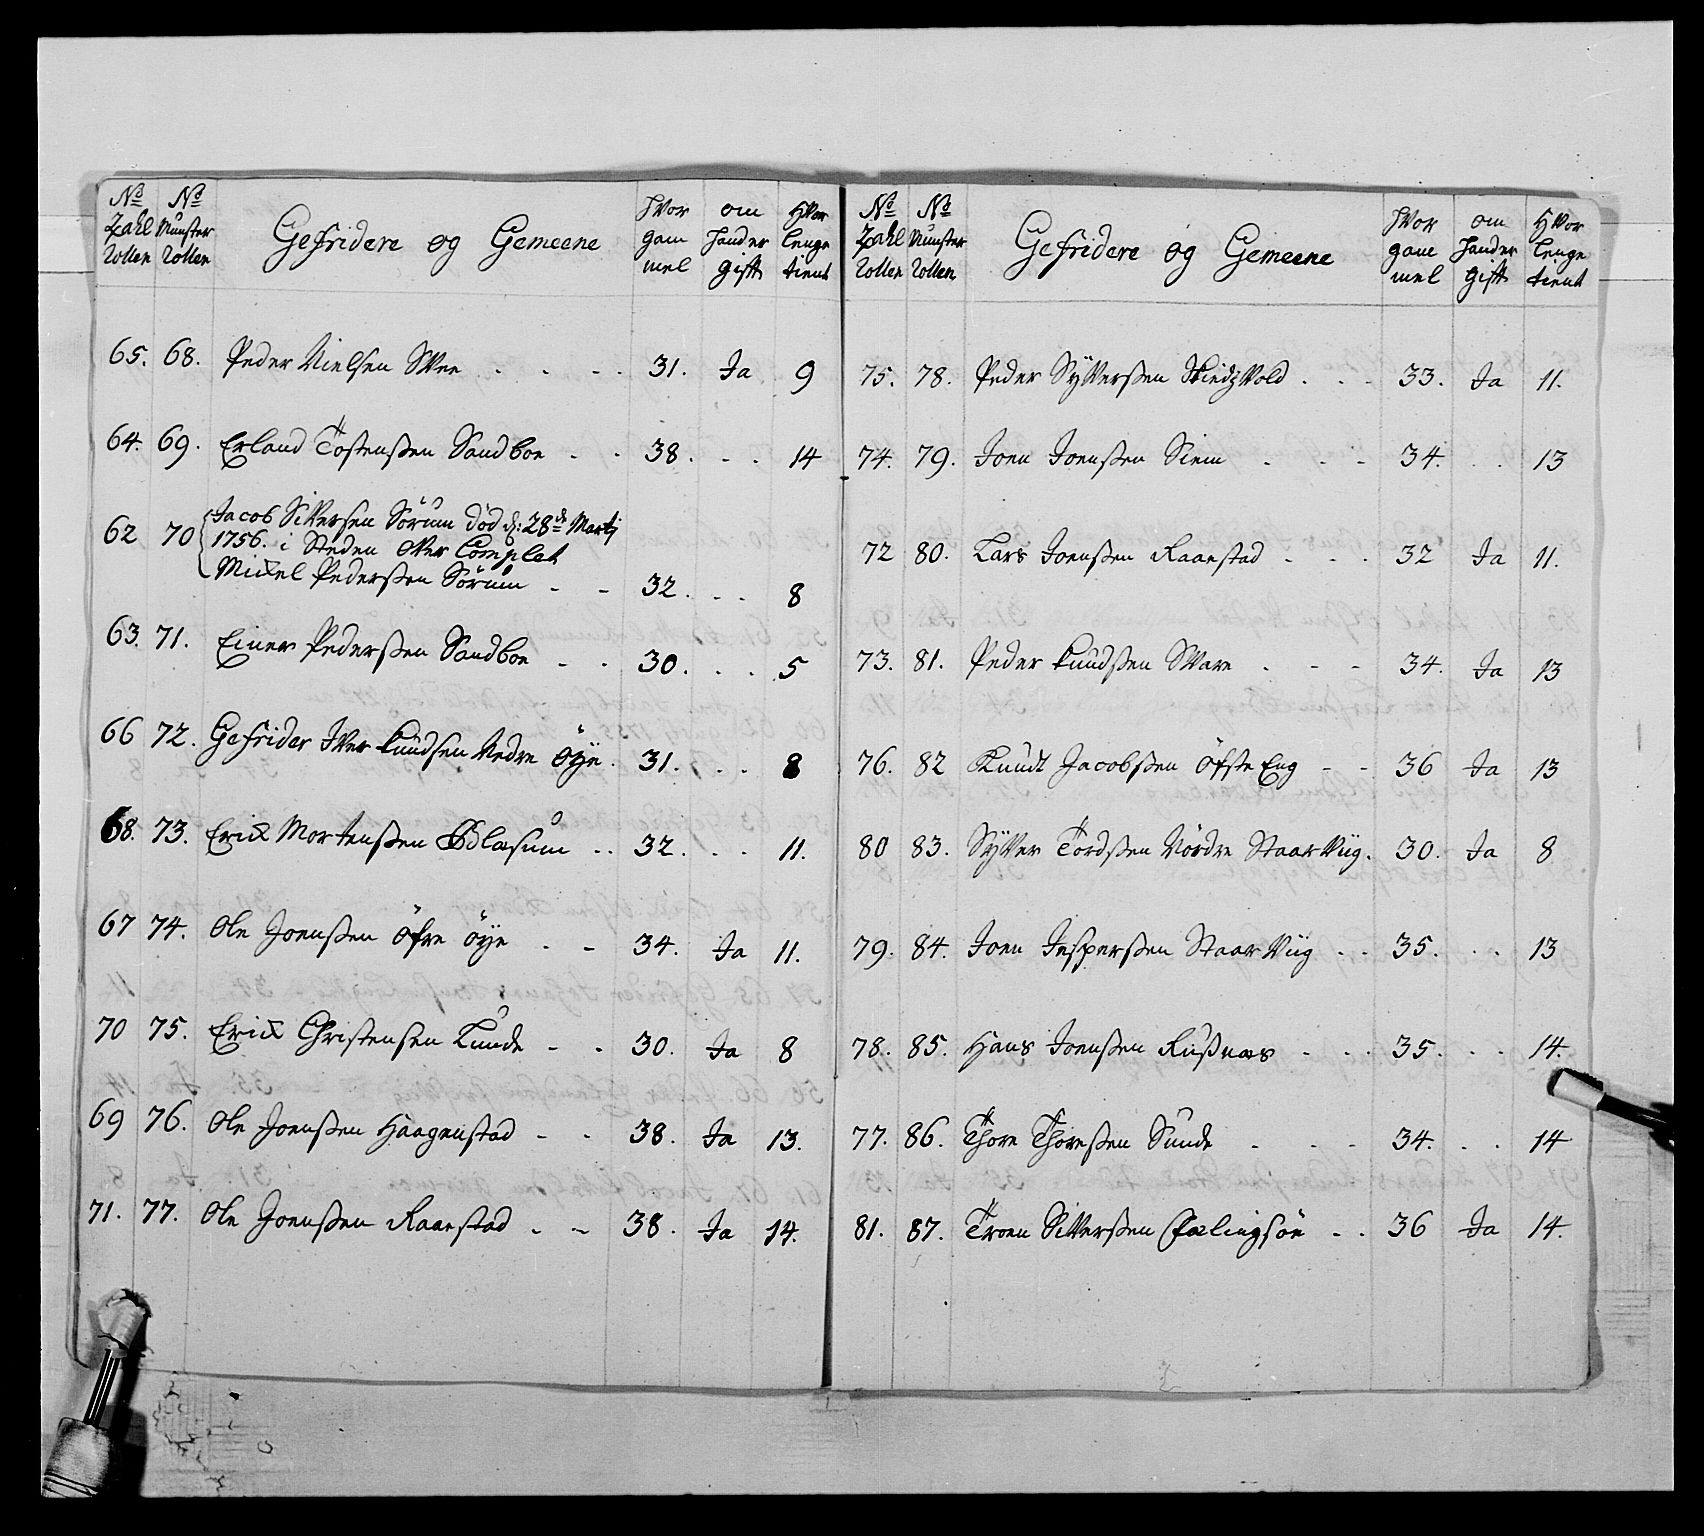 No Zahl Rollen | No Munster Rollen | Gefridere og Gemeene | Hvor gammel | om hand er gift | Hvor lenge tient
65. 68. Peder Nielsen Svee . . . . 31. Ja 9
64. 69. Erland Tostenssen Sandboe . . 38. . . 14
62 70 Jacob Siversen Sörum död d: 28de Martj
1756. i Steden Over Complet
Mickel Pederssen Sörum . . 32. . . 8
63. 71. Einer Pederssen Sandboe . . 30. . . 5
66 72. Gefrider Iver Knudsen Nedre Öÿe. 31. . . 8
68. 73. Erick Mortenssen Ödlasum . . 32. . . 11.
67 74. Ole Joenssen Öfre Öÿe . . 34. Ja 11.
70 75. Erick Christensen Lunde . . 30. Ja 8
69 76. Ole Joenssen Haagenstad . . 38. Ja 13.
71. 77. Ole Joenssen Raanstad . . 38. Ja 14.
No Zahl Rollen | No Munster Rollen | Gefridere og Gemeene | Hvor gammel | om hand er gift | Hvor lenge tient
75. 78. Peder Sÿverssen . . . 33. Ja 11.
74. 79. Joen Joenssen Siem . . . 34. . . 13
72 80. Lars Joenssen Raanstad . . . 32 Ja 11.
73. 81. Peder Knudssen Svare . . . 34. Ja 13
76. 82 Knudt Jacobssen Öfste Eng . . 36 Ja 13
80 83. Sÿver Tordssen Nördre Staarviig. 30. Ja 8
79. 84. Joen Jesperssen Staarviig . . 35. . . 13
78. 85. Hans Joenssen Rusnæs . . . 35. . . 14.
77. 86. Thore Thoressen Sunde . . . 34. . . 14
81. 87. Troen Siverssen Fælingsöe . . 36 Ja 14.